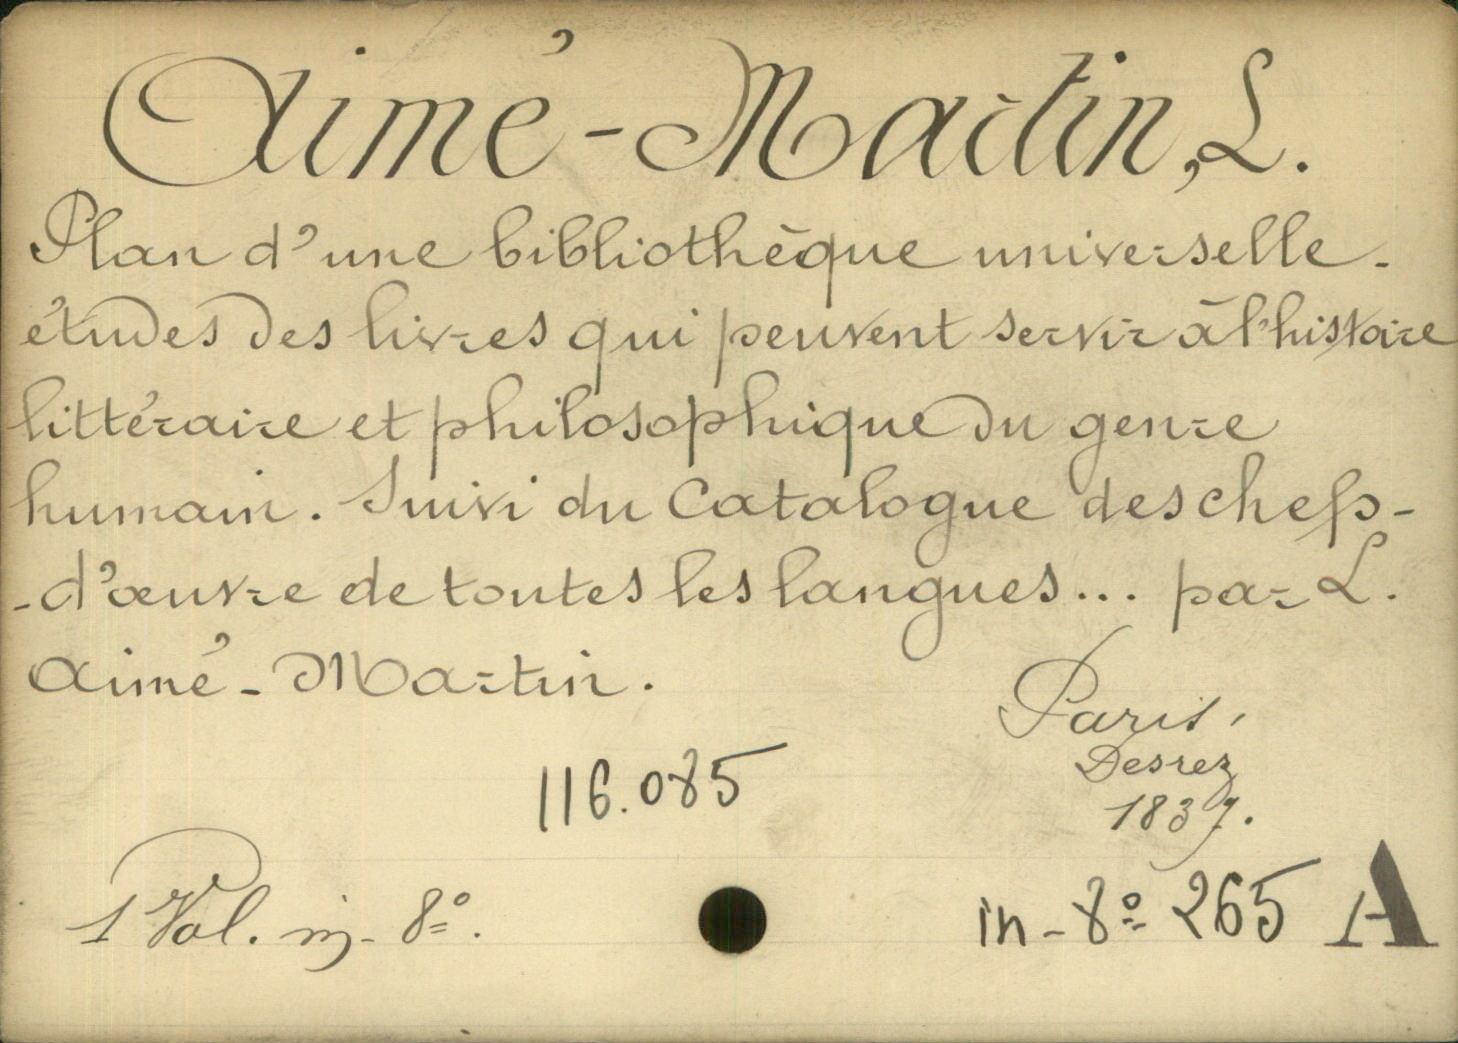 Aimé-Martin, L.
Plan d'une bibliothèque universelle.
études des livres qui peuvent servir à l'histoire
littéraire et philosophique du genre
humain. Suivi du Catalogue des chefs-
-d'œuvre de toutes les langues... par L.
Aimé-Martin.
Paris,
Desrez
1837.
116.085
1 Vol. in-8º.
in-8º 265 A